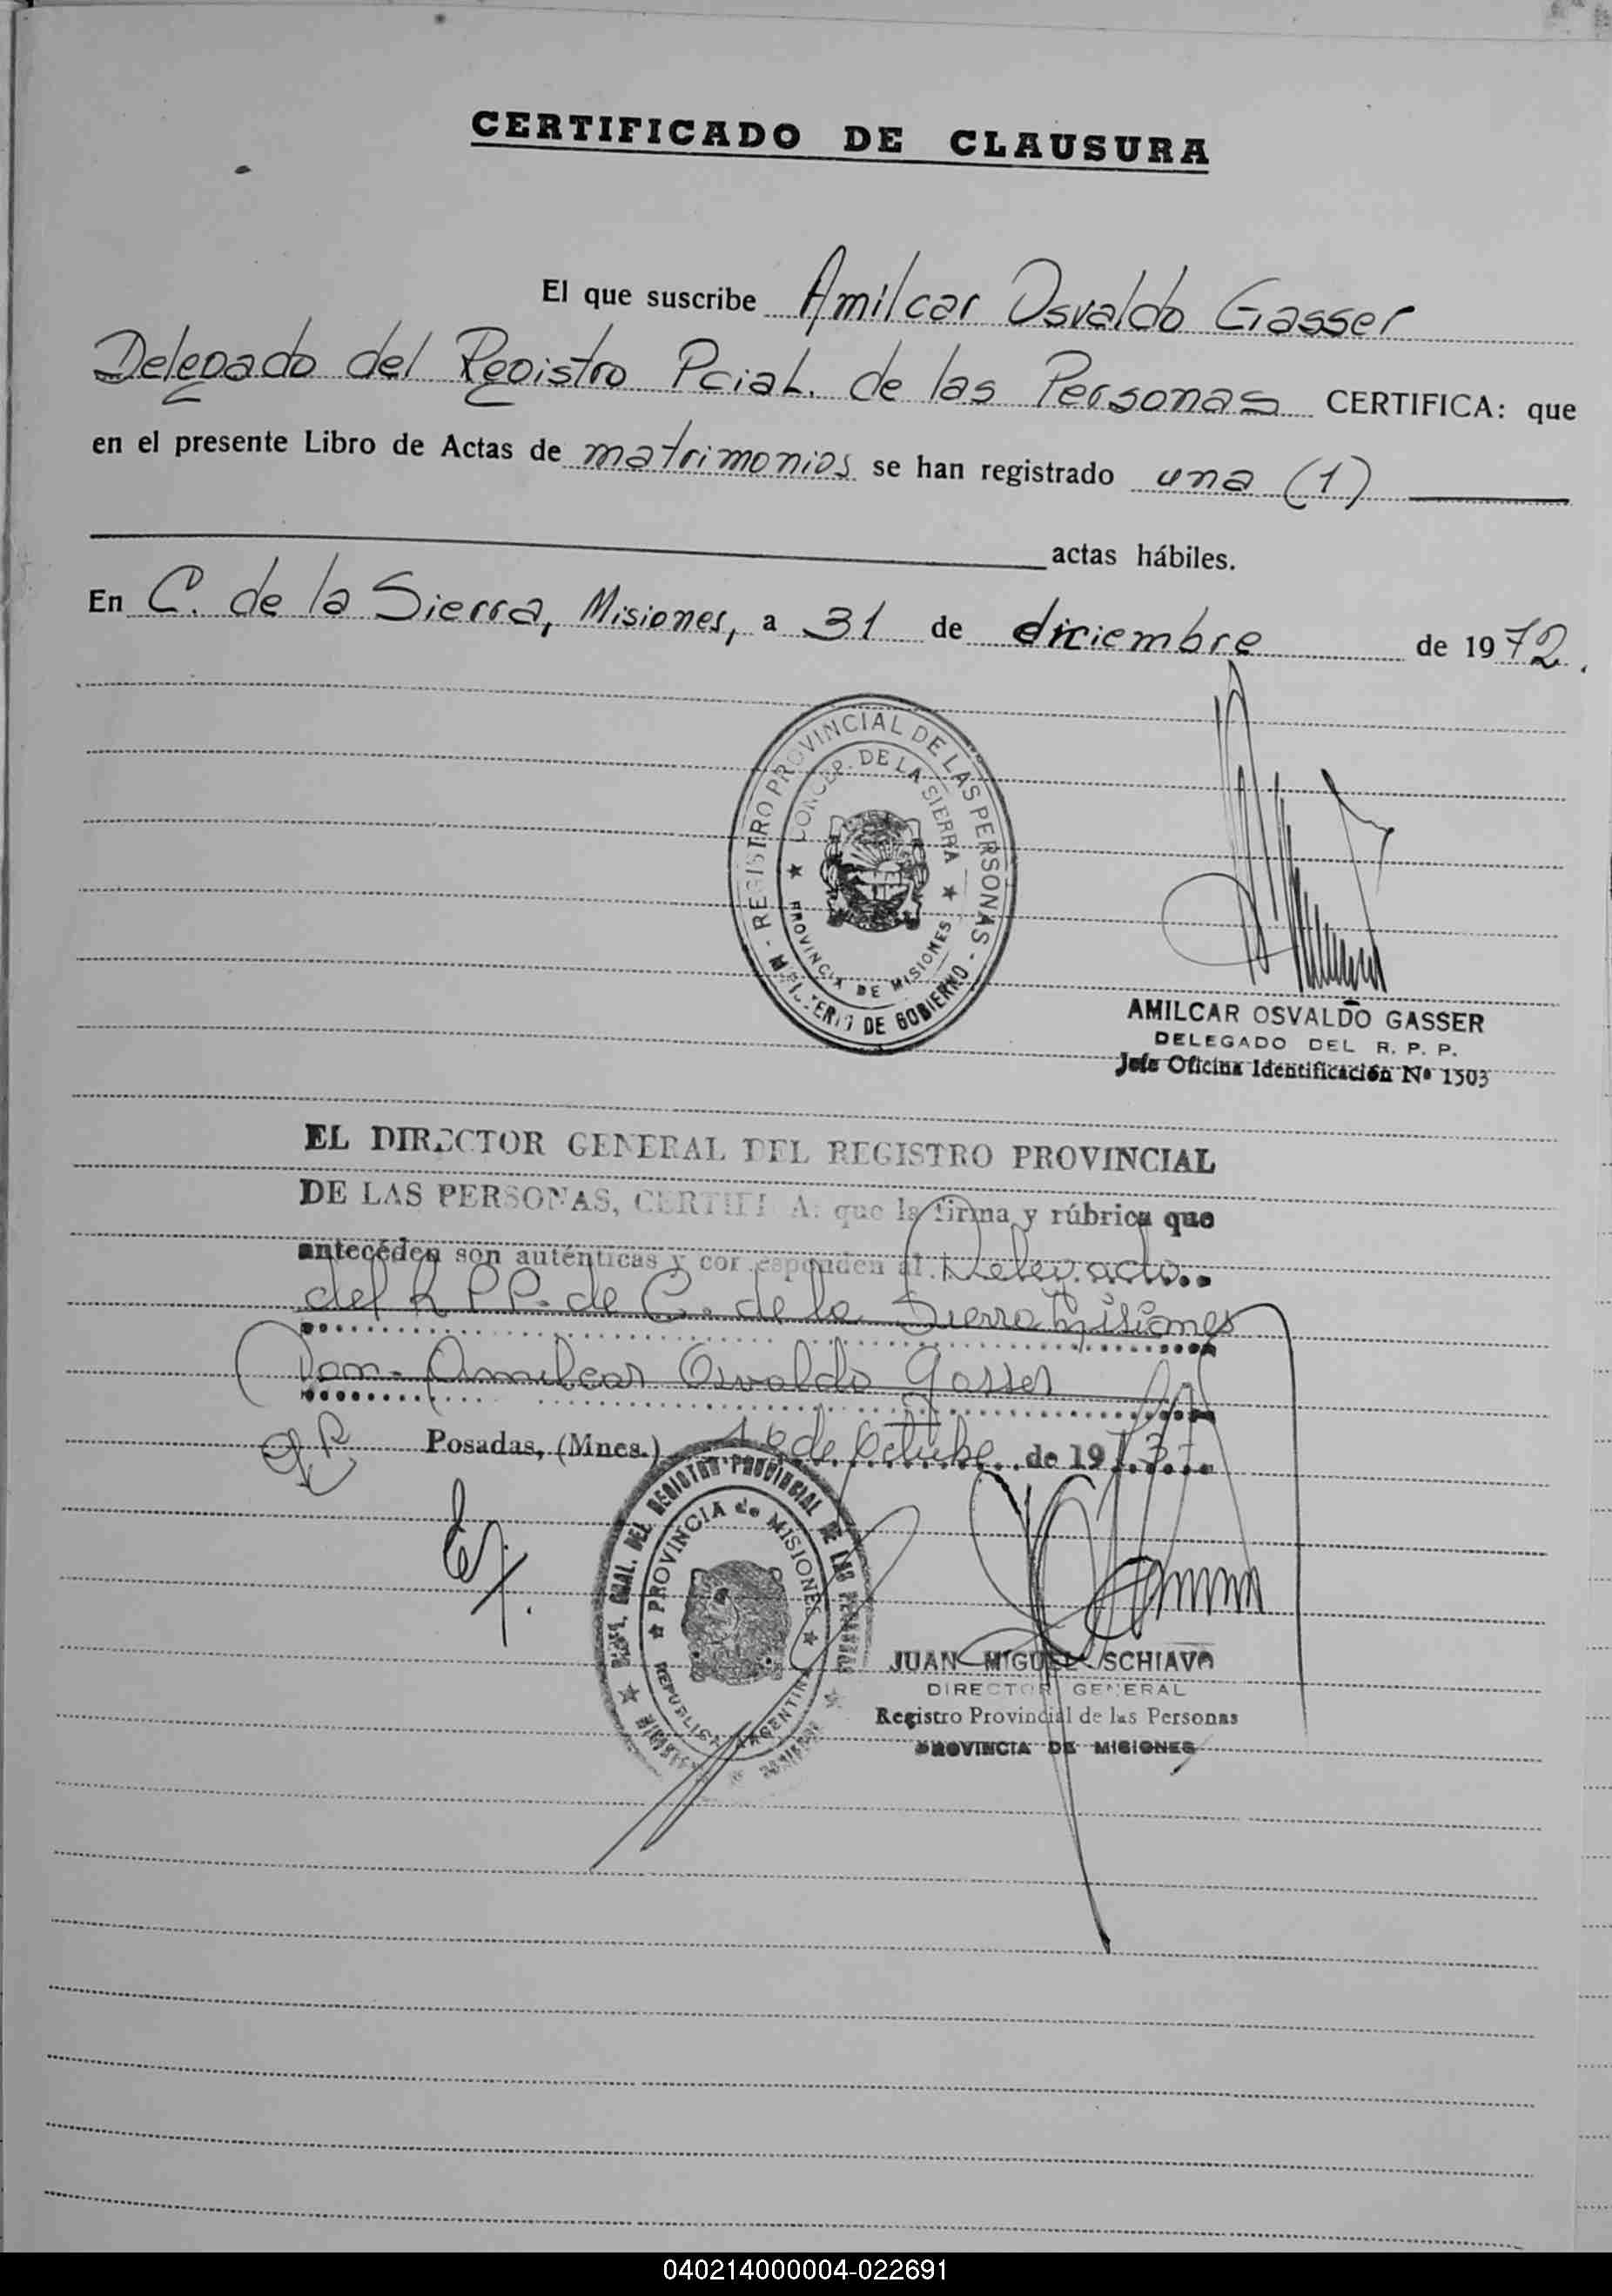 CERTIFICADO DE CLAUSURA
El que suscribe Amilcar Osvaldo Gasser
Delegado del Registro Pcial. de las Personas CERTIFICA: que
en el presente Libro de Actas de matrimonios se han registrado una (1)
actas hábiles.
En C. de la Sierra, Misiones, a 31 de diciembre de 1972.
REGISTRO PROVINCIAL DE LAS PERSONAS
CONCEP. DE LA SIERRA
PROVINCIA DE MISIONES
MINISTERIO DE GOBIERNO
AMILCAR OSVALDO GASSER
DELEGADO DEL R. P. P.
Jefe Oficina Identificación Nº 1503
EL DIRECTOR GENERAL DEL REGISTRO PROVINCIAL
DE LAS PERSONAS, CERTIFICA: que la firma y rúbrica que
anteceden son auténticas y corresponden al Delegado
del R.P.P. de C. de la Sierra Misiones
Don Amilcar Osvaldo Gasser
Posadas, (Mnes.) 10 de Octubre de 1973
GRAL. DEL REGISTRO PROVINCIAL DE LAS PERSONAS
PROVINCIA de MISIONES
REPUBLICA ARGENTINA
JUAN MIGUEL SCHIAVO
DIRECTOR GENERAL
Registro Provincial de las Personas
PROVINCIA DE MISIONES
040214000004-022691